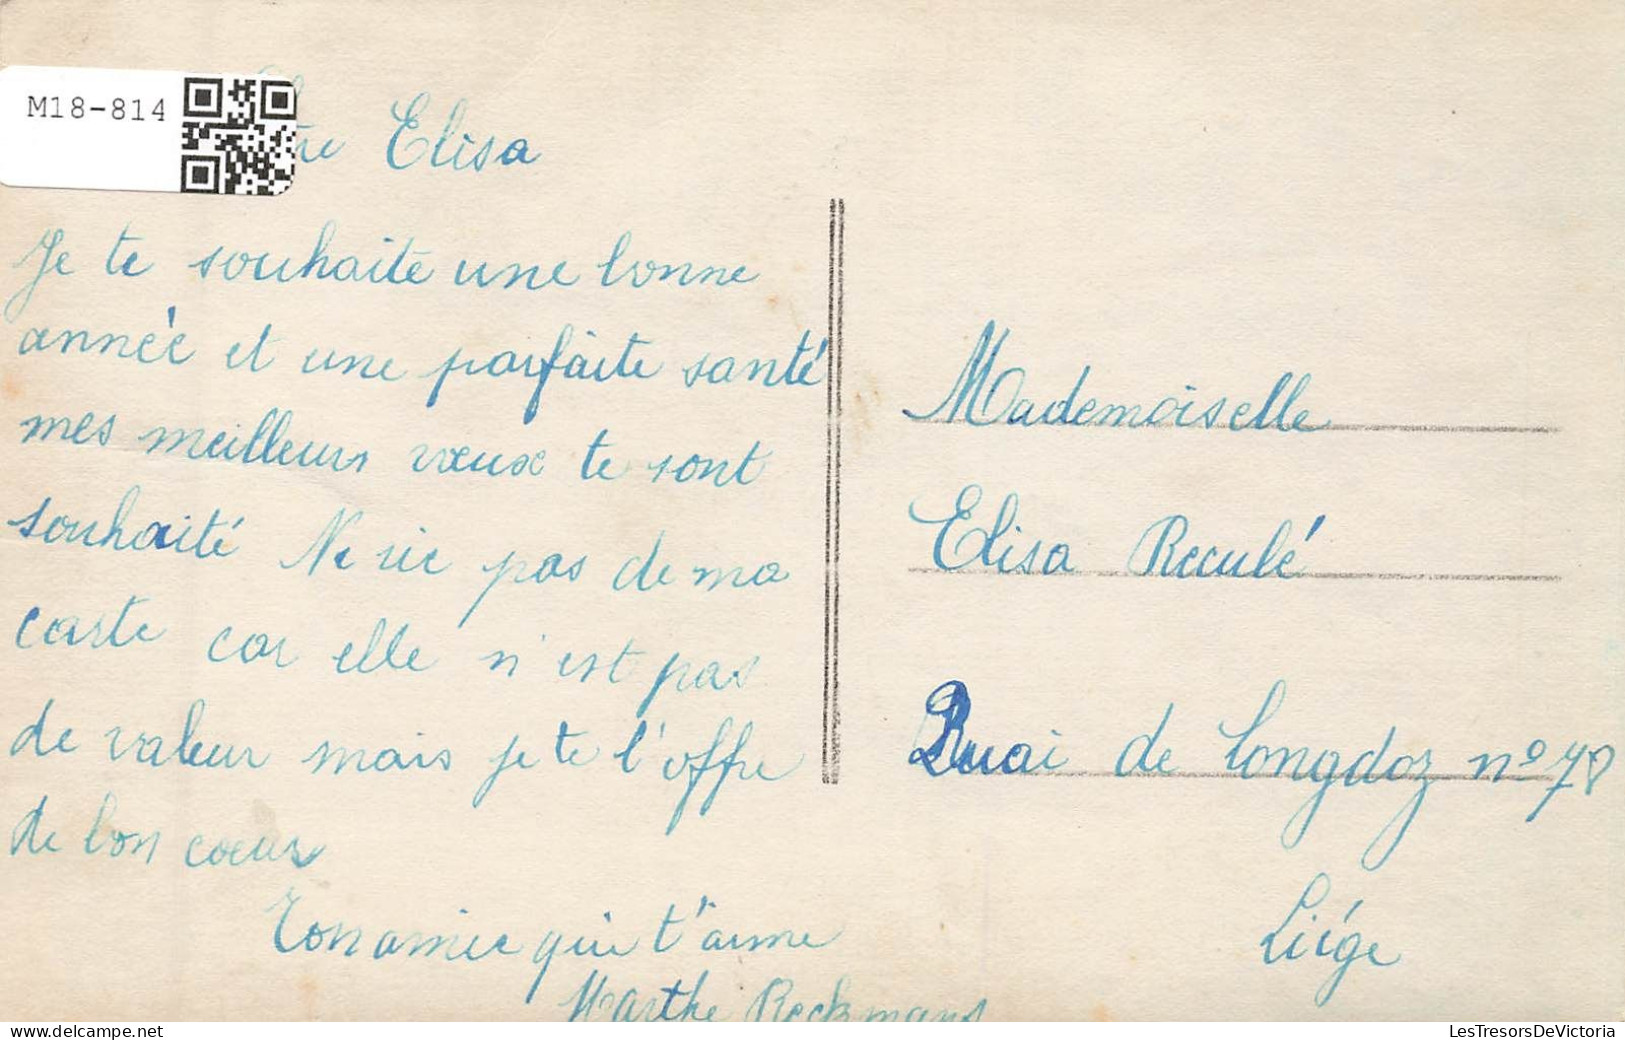 M18-814
Elisa
Je te souhaite une bonne
année et une parfaite santé
mes meilleurs vœux te sont
souhaité Ne rie pas de ma
carte car elle n'est pas
de valeur mais je te l'offre
de bon cœur
Ton amie qui t'aime
Marthe Reckmans
Mademoiselle
Elisa Reculé
Quai de Longdoz nº 78
Liége
LesTresorsDeVictoria